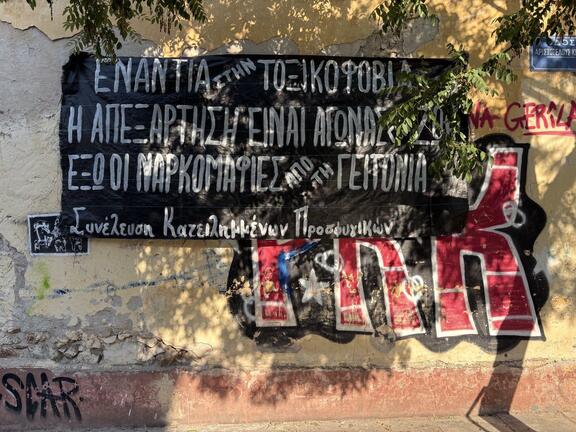 ΕΝΑΝΤΙΑ ΣΤΗΝ ΤΟΞΙΚΟΦΟΒΙΑ
Η ΑΠΕΞΑΡΤΗΣΗ ΕΙΝΑΙ ΑΓΩΝΑΣ
ΕΞΩ ΟΙ ΝΑΡΚΟΜΑΦΙΕΣ ΑΠΟ ΤΗ ΓΕΙΤΟΝΙΑ
Συνέλευση Κατειλημμένων Προσφυγικών
GERÎLA
SCAR